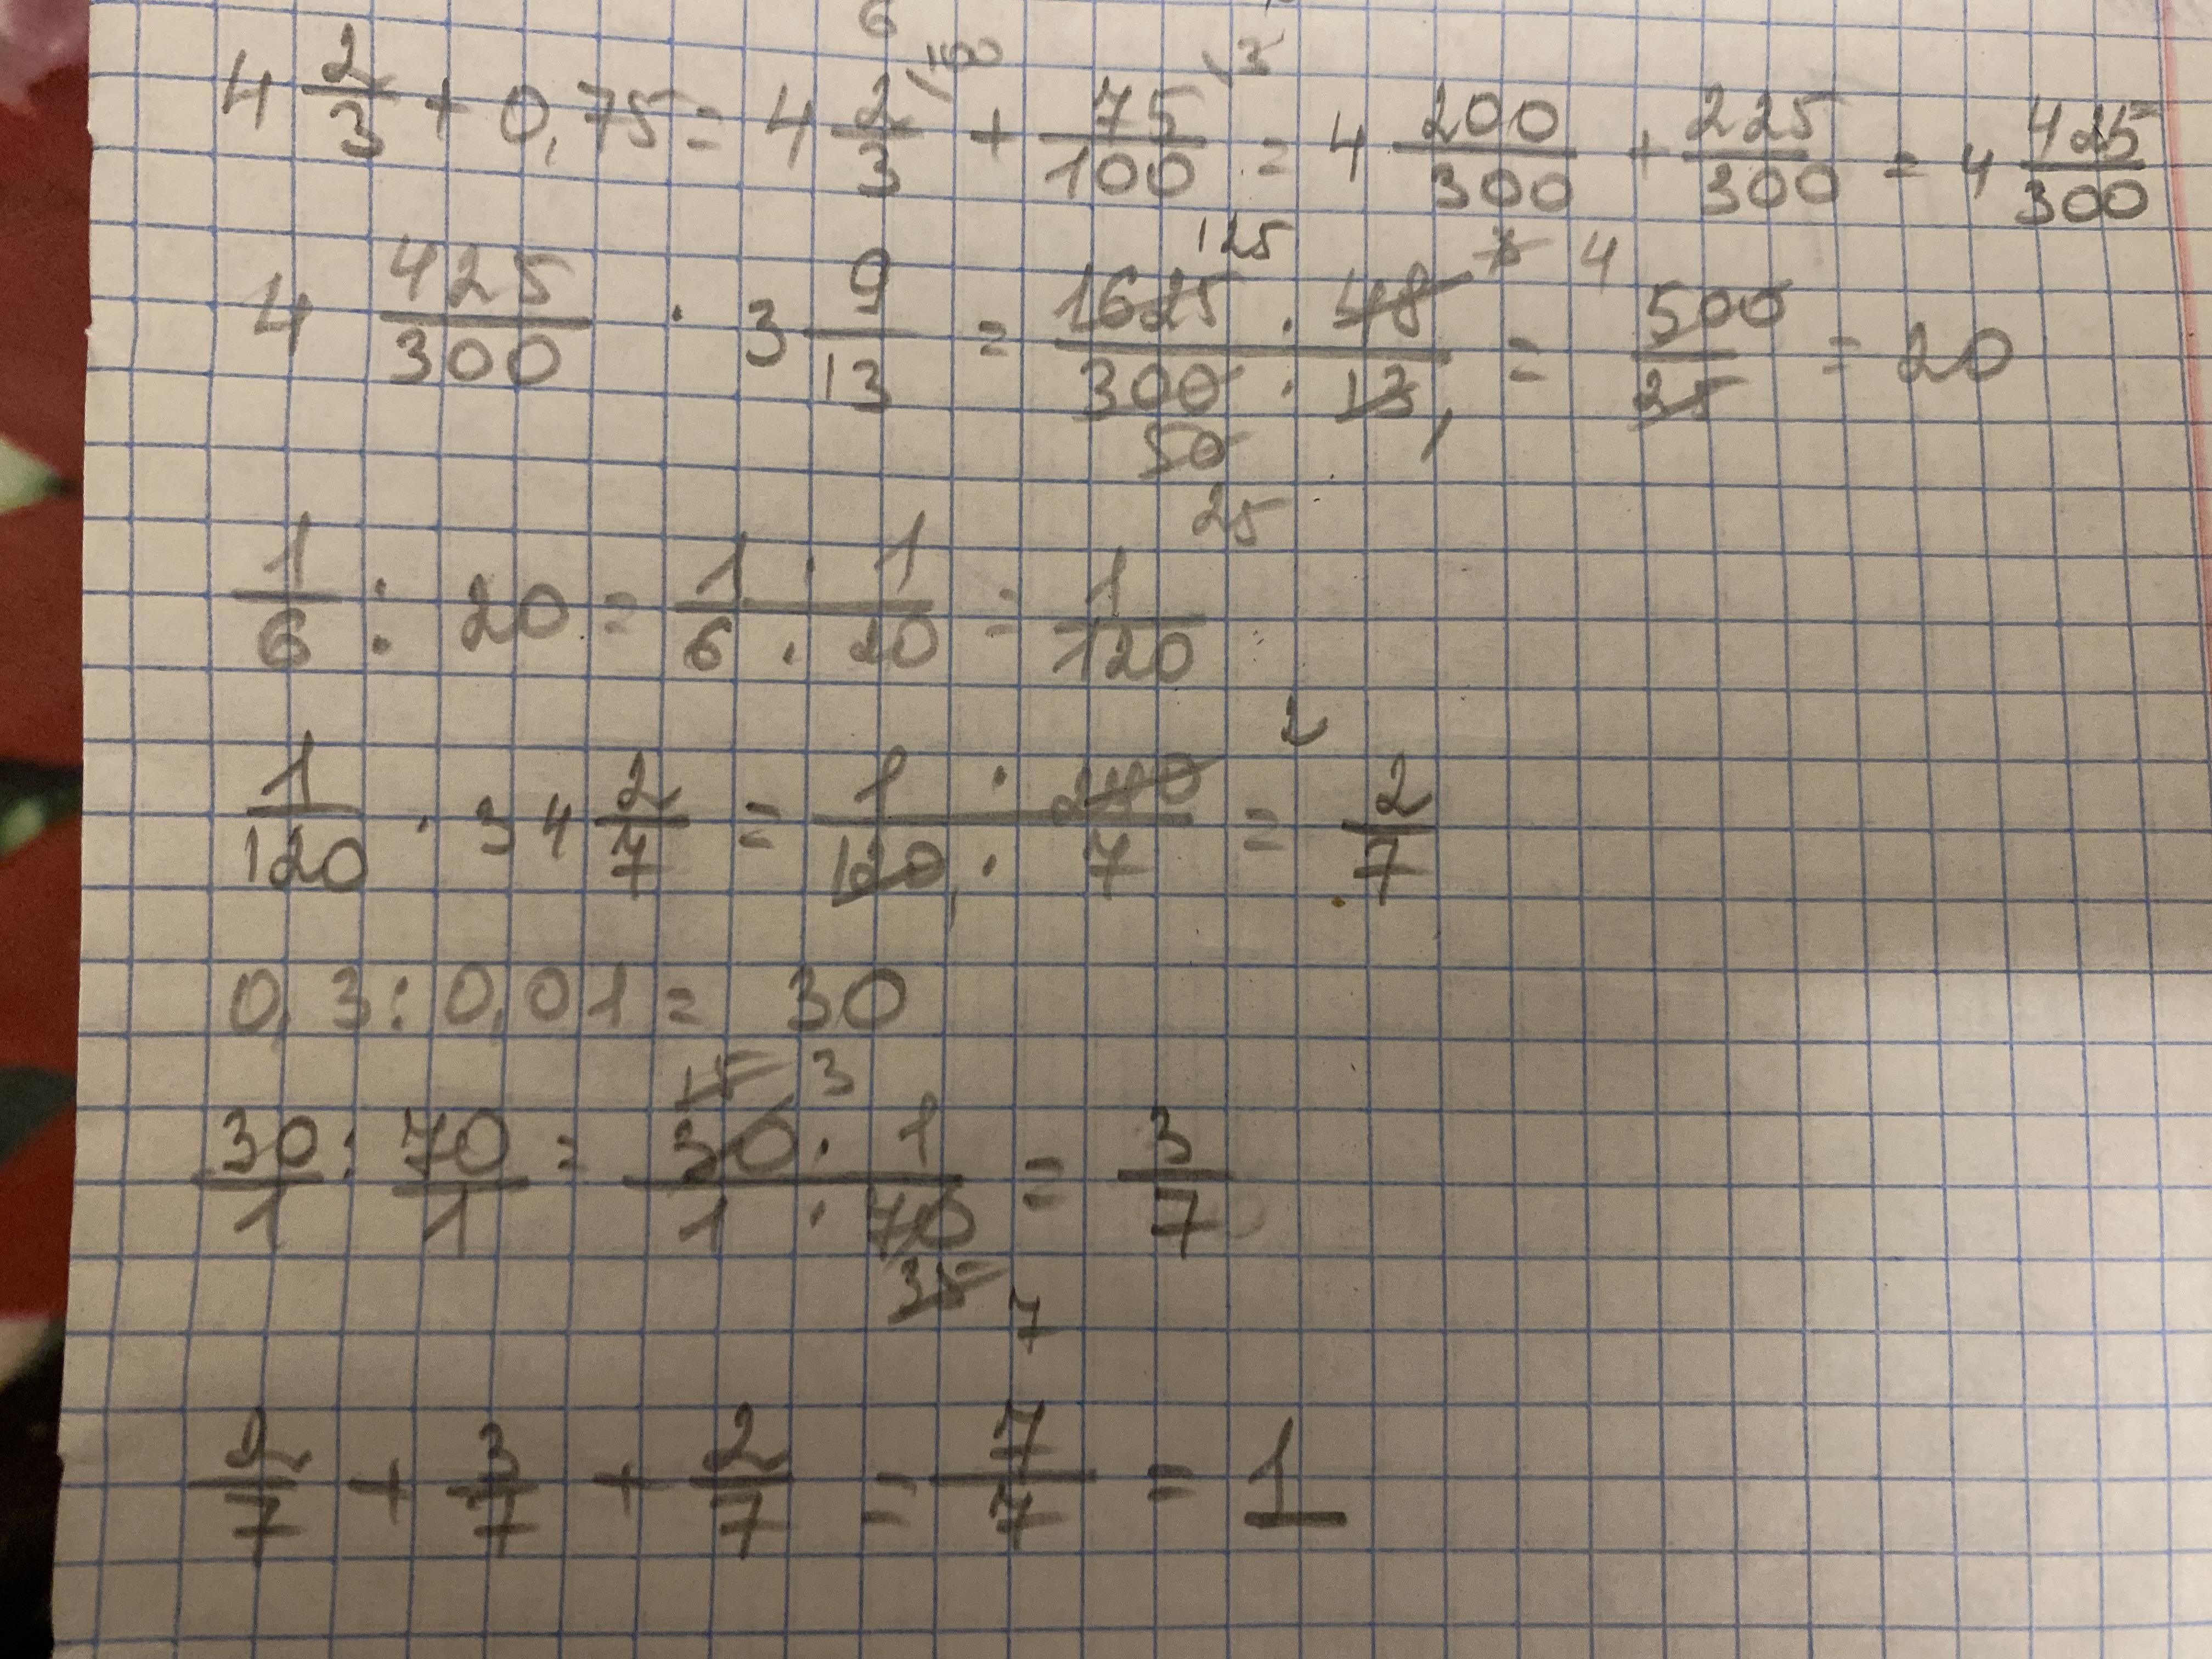 4 2/3 + 0,75 = 4 2/3 \100 + 75/100 \3 = 4 200/300 + 225/300 = 4 425/300
4 425/300 · 3 9/13 = 1625 125 · 48 8 4 / 300 50 25 · 13 1 = 500/25 = 20
1/6 : 20 = 1 · 1 / 6 · 20 = 1/120
1/120 · 34 2/7 = 1 · 240 2 / 120 1 · 7 = 2/7
0,3 : 0,01 = 30
30/1 : 70/1 = 30 15 3 · 1 / 1 · 70 35 7 = 3/7
2/7 + 3/7 + 2/7 = 7/7 = 1